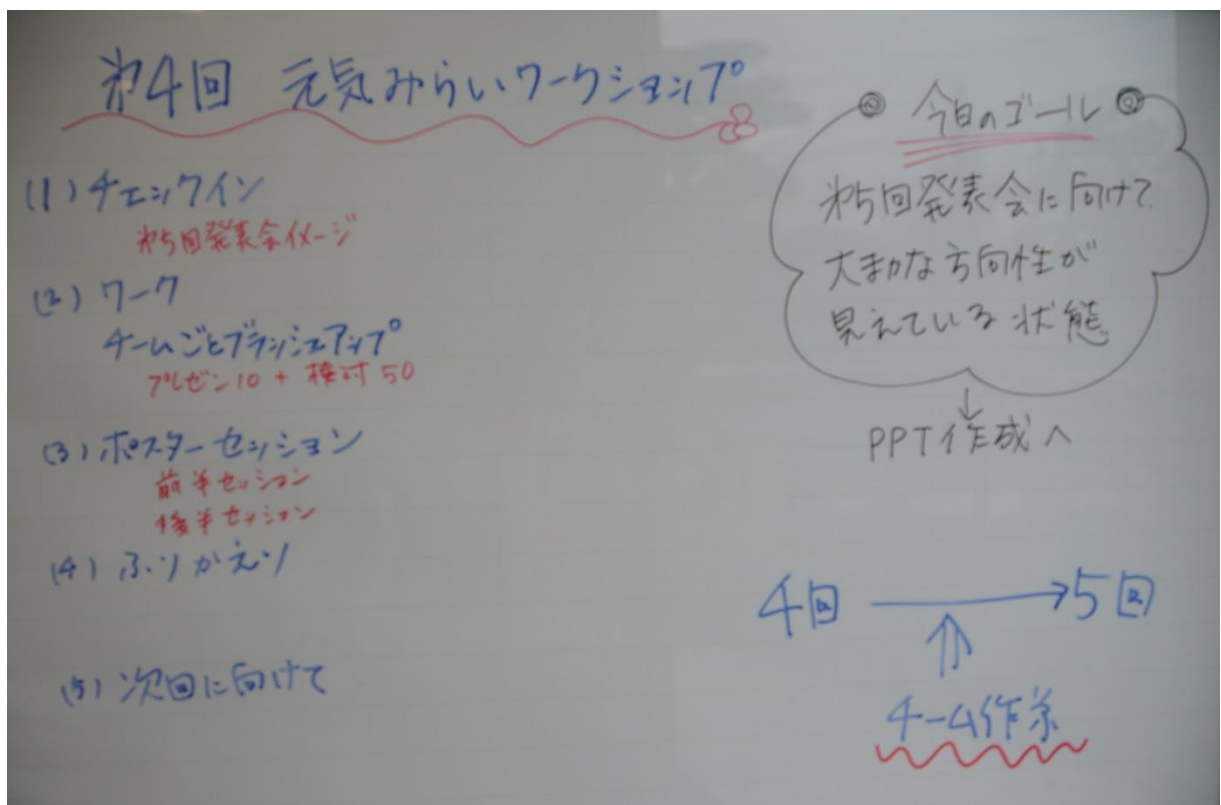 第4回 元気みらいワークショップ
(1) チェックイン
第5回発表会イメージ
(2) ワーク
チームごとブラッシュアップ
プレゼン10 + 検討50
(3) ポスターセッション
前半セッション
後半セッション
(4) ふりかえり
(5) 次回に向けて
今日のゴール
第5回発表会に向けて
大まかな方向性が
見えている状態
↓
PPT作成へ
4回 → 5回
⇑
チーム作業